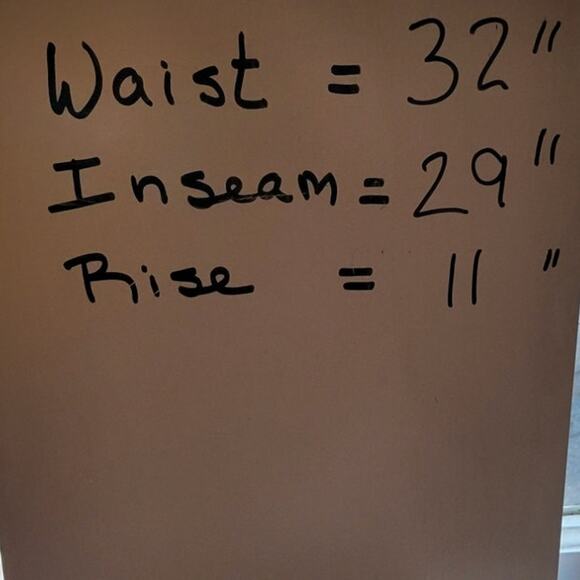 Waist = 32"
Inseam = 29"
Rise = 11"